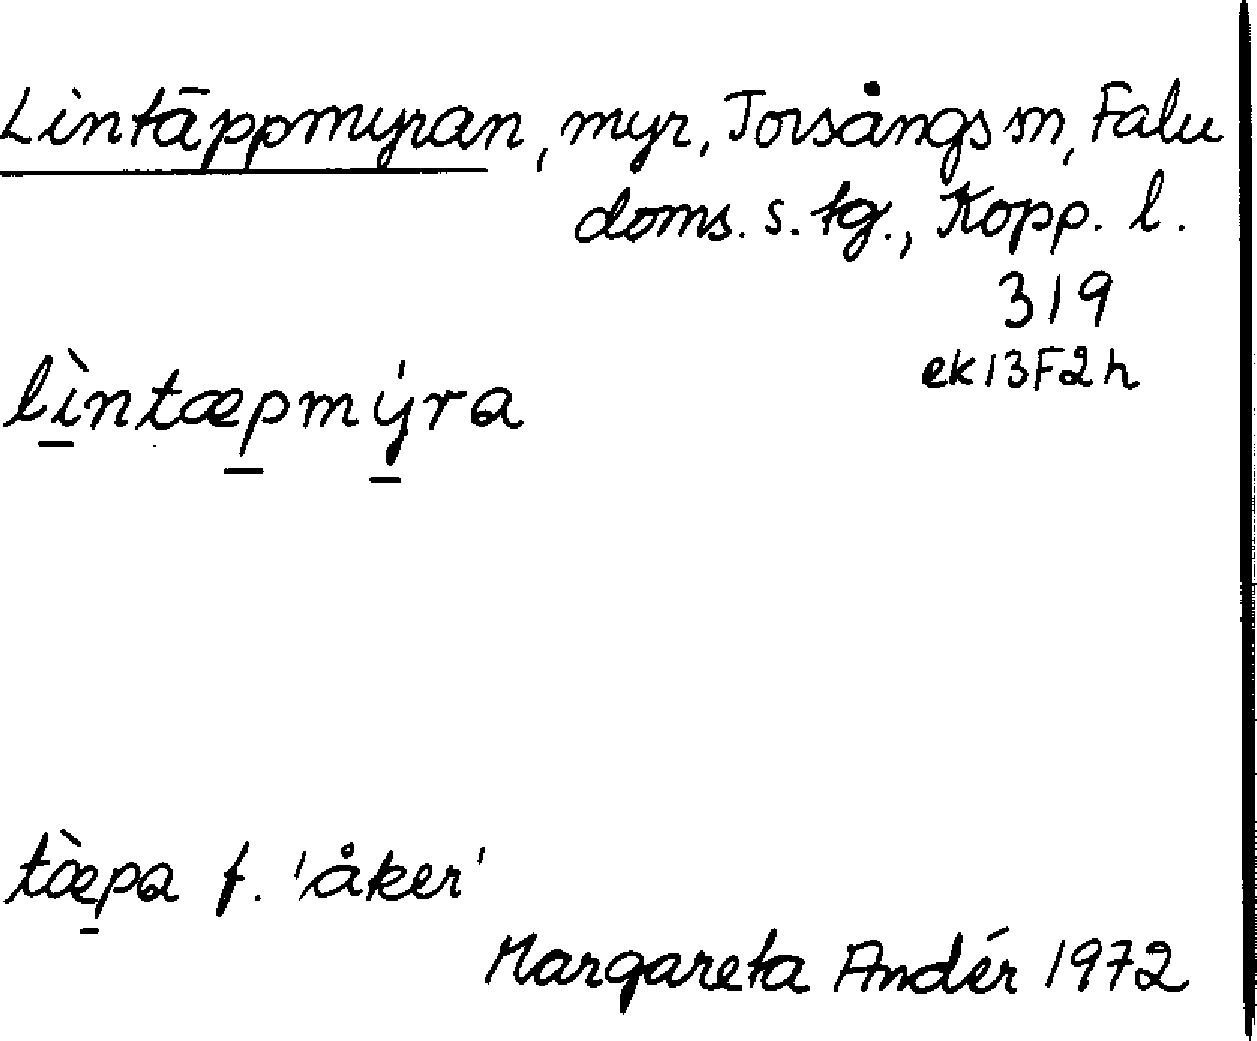 Lintäppmyran, myr, Torsångs sn, Falu
doms. s. tg., Kopp. l.
319
ek 13F2h
lìntæpmýra
tæ̀pa f. 'åker'
Margareta Andér 1972